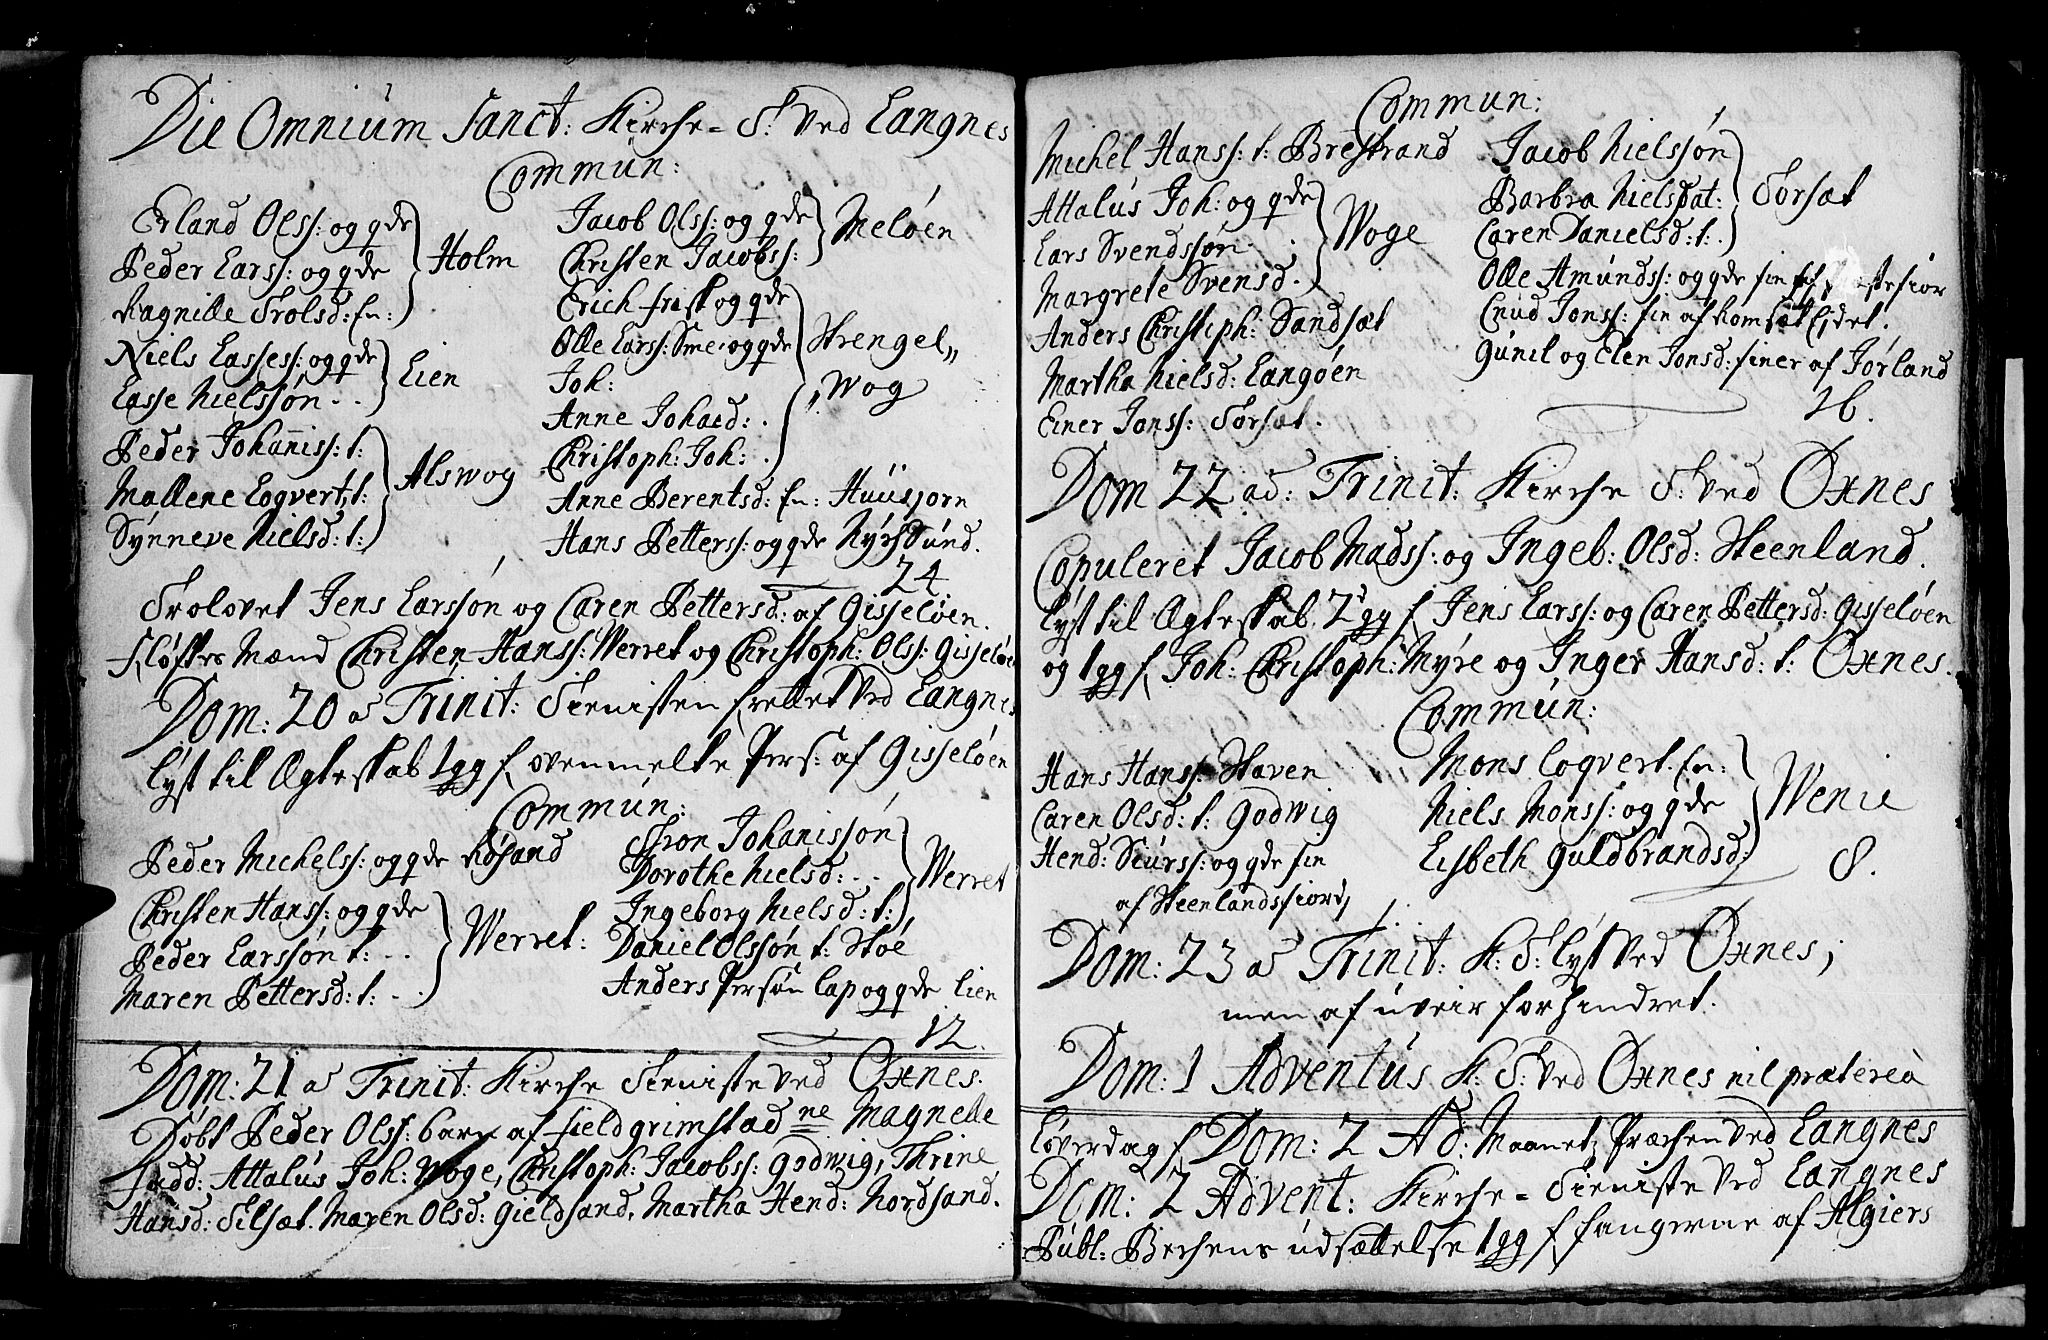 Die Omnium Sanct: Kirche-S: Ved Langnes
Commun:
Erland Olss: og qde
Peder Larss: og qde
Ragnille Trolsd: En:
Holm
Niels Lasses: og qde
Lasse Nielssøn
Eien
Peder Johaniss: t:
Mallene Logvert: t:
Synneve Nielsd: t:
Alswog
Jacob Olss: og qde
Christen Jacobss:
Meløen
Erich frisk og qde
Olle Larss: Sme: og qde
Joh:
Anne Johasd:
Christoph: Joh:
Strengel„
„Wog
Anne Berentsd: En: Huusjorn
Hans Petterss: og qde Nyrsund.
24
Trolovet Jens Larssøn og Caren Pettersd: af Gisseløen.
Fløftes Mænd Christen Hanss: Werret og Christoph: Olss: Gisseløe
Dom: 20 a Trinit: Tienisten frettet Ved Langnes
Lyst til Ægteskab 1gg f ovenmelte Pers: af Gisseløen
Commun:
Peder Michelss: og qde Rosand
Christen Hanss: og qde
Peder Larssøn t:
Maren Pettersd: t:
Werret:
Thron Johanissøn
Dorothe Nielsd:
Ingeborg Nielsd: t:
Werret
Daniel Olssøn t: Støe
Anders Persøn Lap og qde Lien
12.
Dom: 21 a Trinit: Kirche Tieniste Ved Oxnes.
Døbt Peder Olss: barn af fieldgrimstad ne Magnelle
Fadd: Attalus Joh: Woge, Christoph: Jacobss: Godwig, Thrine
Hansd: Tilsæt. Maren Olsd: Gieldsand, Martha Hend: Nordsand.
Commun:
Michel Hanss: t: Brestrand
Attalus Joh: og qde
Lars Svendssøn
Margrete Svensd.
Woge
Anders Christiph: Sandsæt
Martha Nielsd: Langøen
Einer Jonss: Torsæt.
Jacob Nielssøn
Barbra Nielsdat:
Caren Danielsd: t:
Torsæt
Olle Amundss: og qde fin af
Cnud Jonss: fin af Romsæt Eidet.
Gunil og Elen Jonsd: finer af Jørland
26.
Dom 22 ad: Trinit: Kirche S: Ved Oxnes
Copuleret Jacob Madss: og Ingeb: Olsd: Steenland.
Lyst til Ægteskab 2 gg f Jens Larss: og Caren Pettersd: Gisseløen
og 1gg f Joh: Christoph: Myre og Inger Hansd: t: Oxnes.
Commun:
Hans Hanss: Staven
Caren Olsd: t: Godwig
Hend: Siurss: og qde fin
af Steenlandsfiord,
Mons Logvert. En:
Niels Monss: og qde
Lisbeth Guldbrandsd:
Wenie
8.
Dom: 23 a Trinit: K: S: Lyst Ved Oxnes;
men af uveir forhindret.
Dom: 1 Adventus K: S: Ved Oxnes nil præterea
Løverdag f Dom: 2 Ad: Maanetz Præchen Ved Langnes
Dom: 2 Advent: Kirche-Tieniste Ved Langnes
Publ: Bechens udsættelse 1gg f fangerne af Algiers